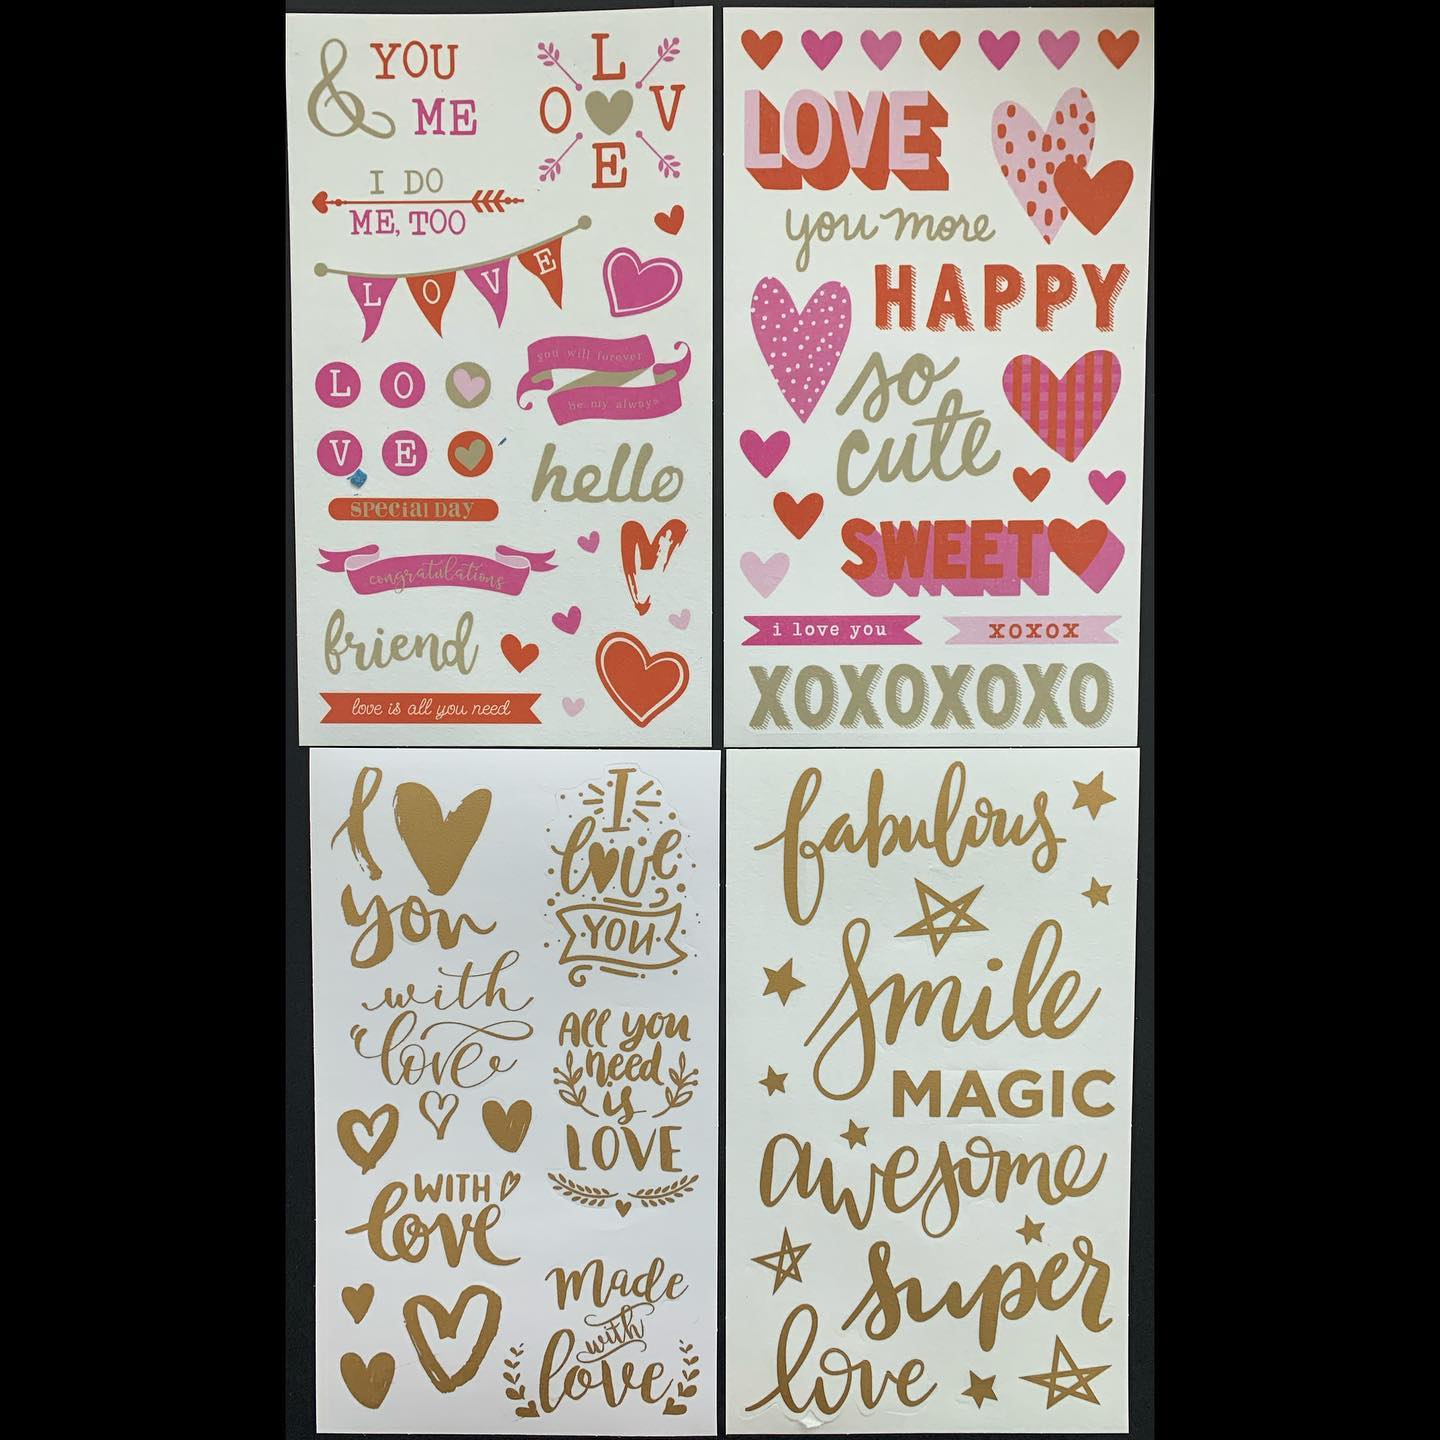 & YOU
ME
L
O V
E
I DO
ME, TOO
LOVE
L O
V E
you will forever
be my always
hello
special day
congratulations
friend
love is all you need
LOVE
you more
HAPPY
so
cute
SWEET
i love you
xoxox
XOXOXOXO
I
you
with
love
WITH
love
I
love
YOU
All you
need
is
LOVE
made
with
love
fabulous
smile
MAGIC
awesome
super
love